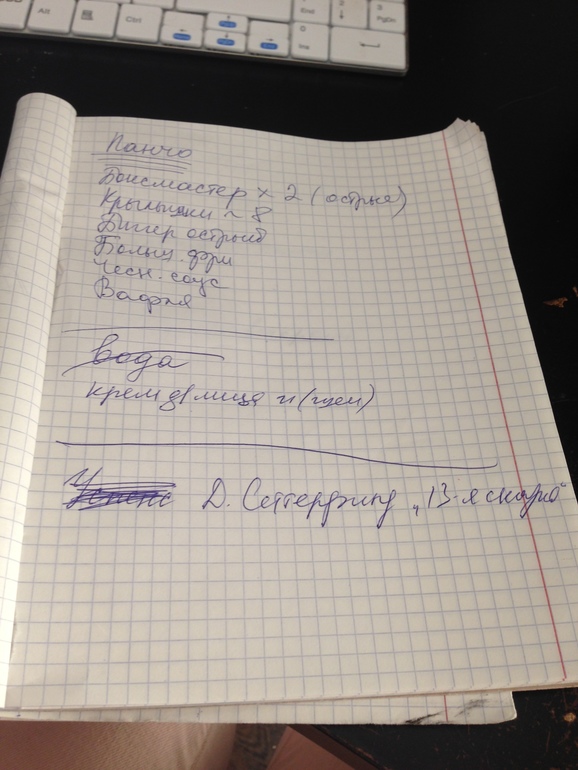 Alt
Ctrl
End
2
3
PgDn
0
Ins
Панчо
Боксмастер x 2 (острые)
Крылышки ~ 8
Биггер острый
Больш. фри
Чесн. соус
Вафля
вода
крем д/ лица и (шеи)
Успенс Д. Сеттерфилд „13-я сказка“